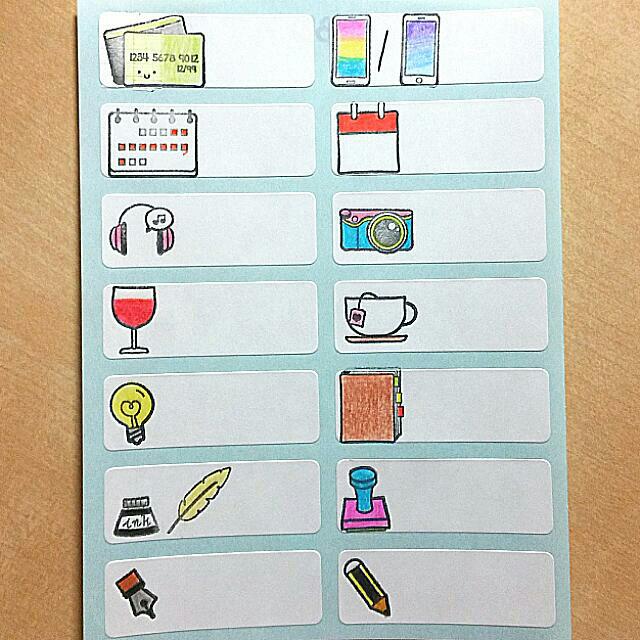 1234 5678 9012
12/99
ink